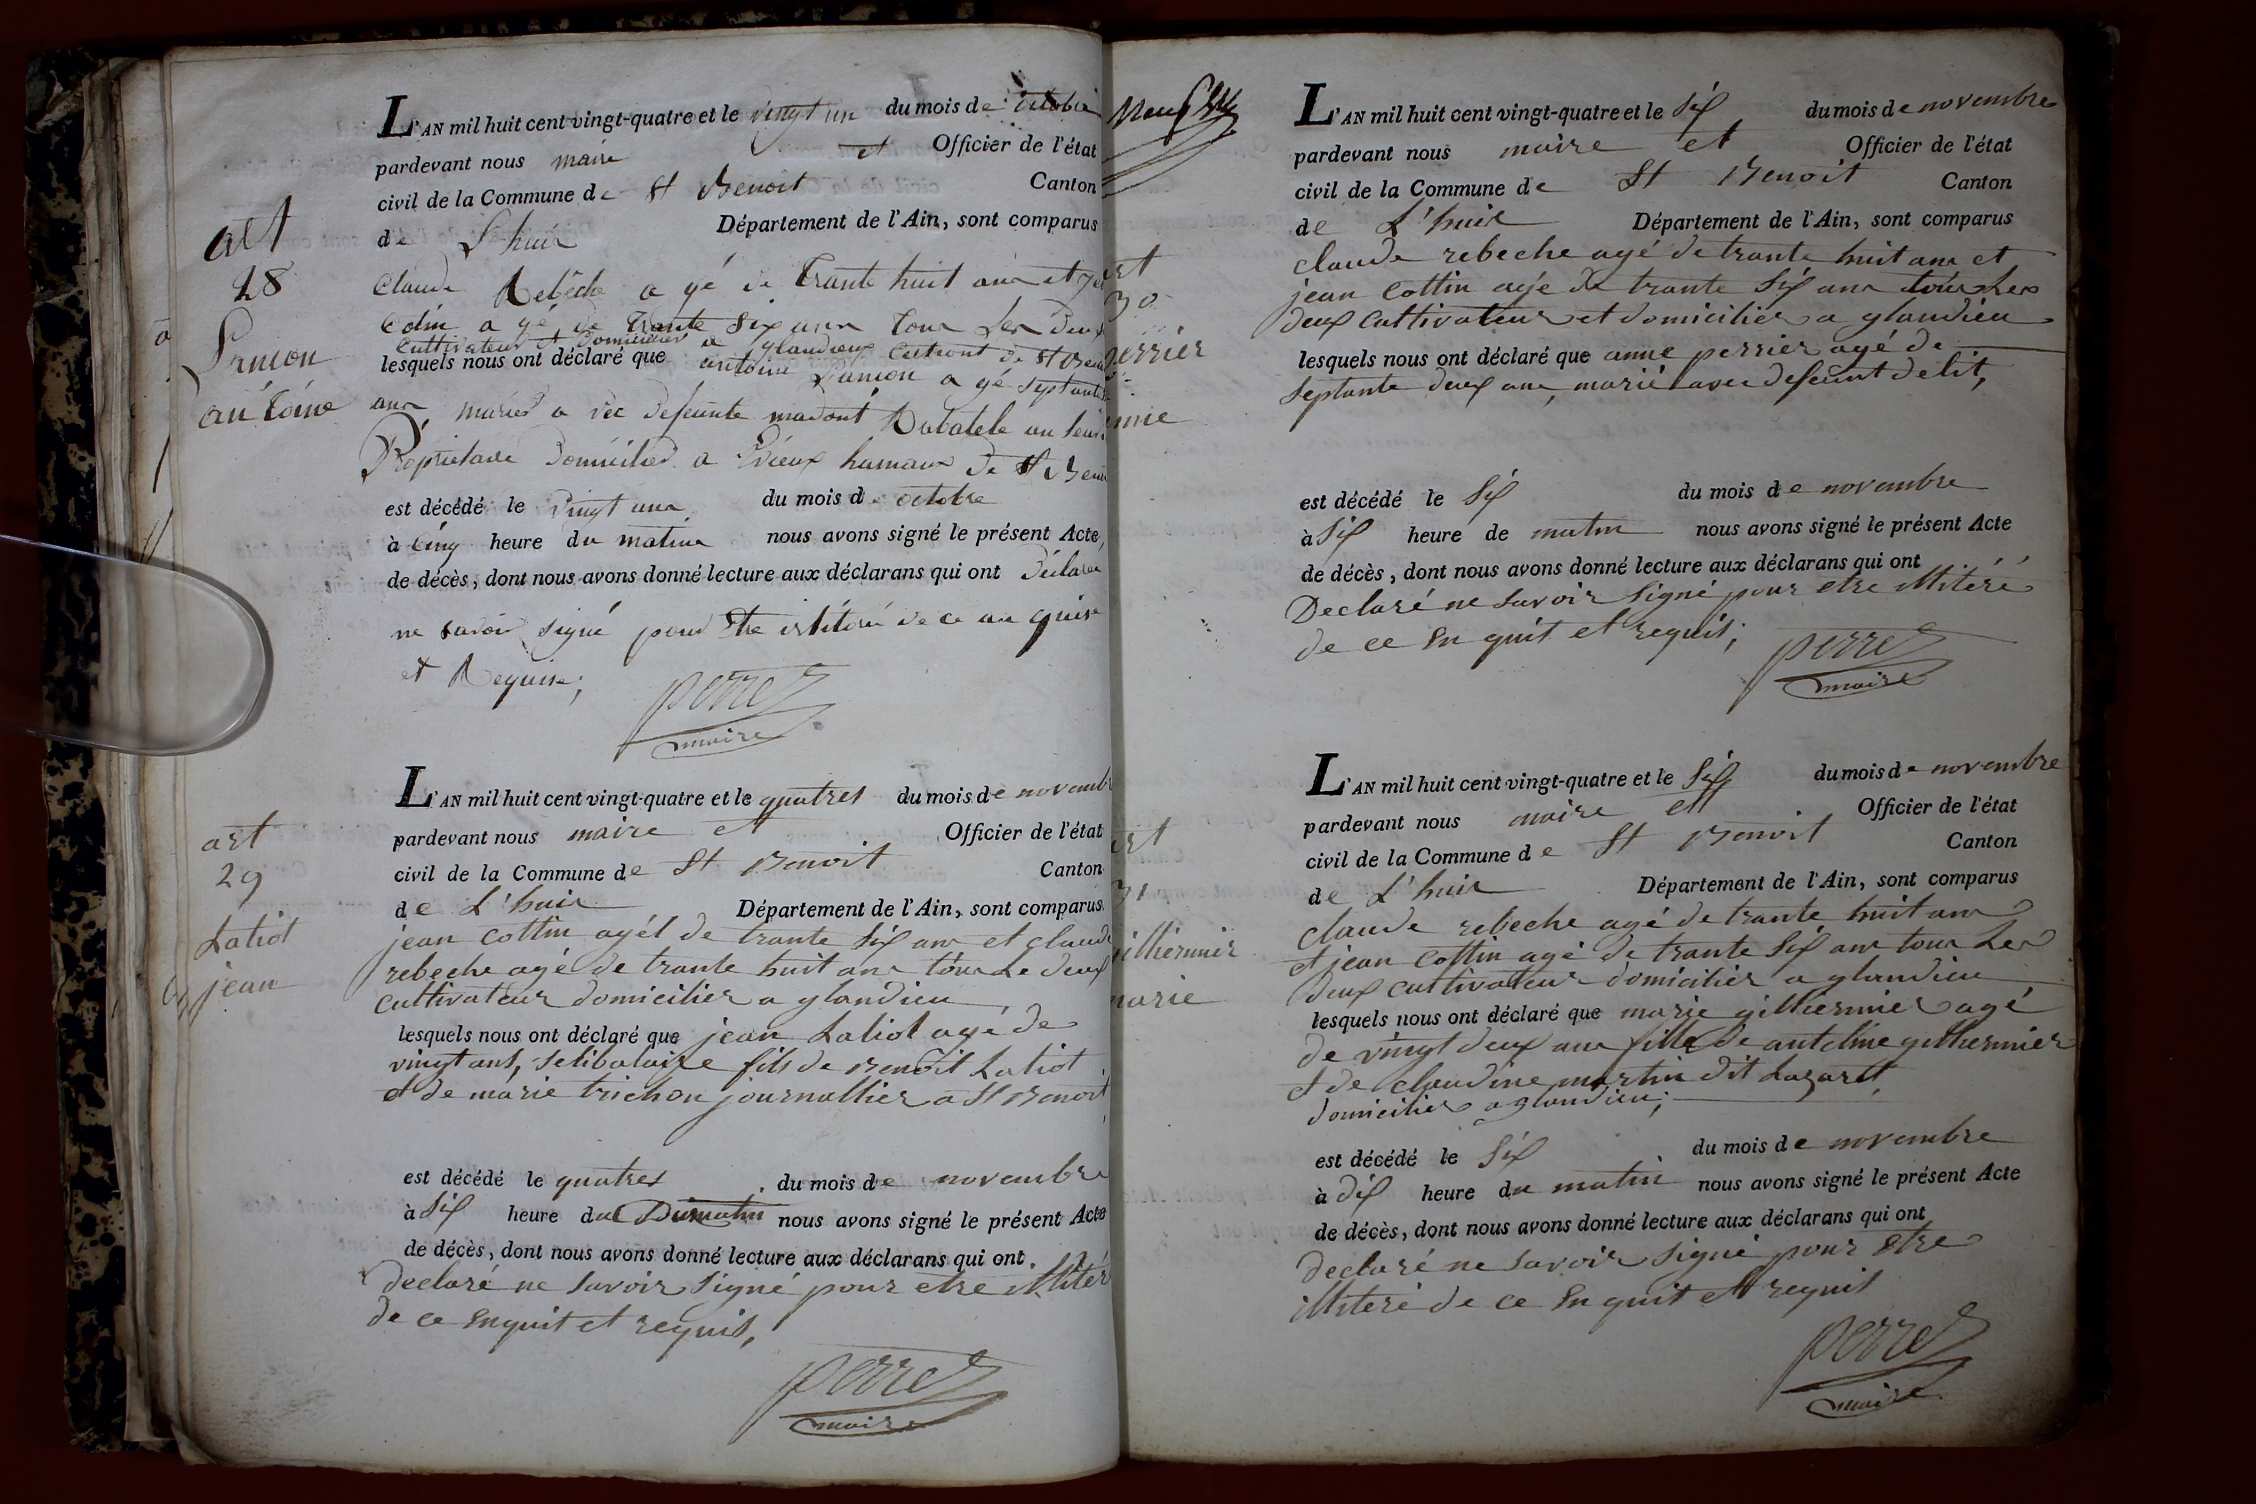 art
28
Pinion
antoine
L'AN mil huit cent vingt-quatre et le vingt un du mois de octobre
pardevant nous maire et Officier de l'état
civil de la Commune de St Benoit Canton
de L'huis Département de l'Ain, sont comparus
Claude Rebêche a gé de trante huit ans et
Cotin a gé de trante six ans tous les deux
Cultivateur et domicilier a glandieux
lesquels nous ont déclaré que antoine a gé septante
ans mariée a vec defeunte
Propriétaire domicilied a de St Benoit
est décédé le vingt une du mois de octobre
à cinq heure du matin nous avons signé le présent Acte
de décès, dont nous avons donné lecture aux déclarans qui ont déclarer
ne savoir signé pour etre de ce
et Requise;
perret
maire
art
29
Latiot
jean
L'AN mil huit cent vingt-quatre et le quatres du mois de novembre
pardevant nous maire et Officier de l'état
civil de la Commune de St Benoit Canton
de L'huis Département de l'Ain, sont comparus
jean Cottin agél de trante six ans et claude
rebeche agé de trante huit ans tous Le deux
cultivateur domicilier a glandieu
lesquels nous ont déclaré que jean Latiot agé de
vingt ans, selibataire fils de Benoit Latiot
et de marie trichon journallier a St Benoit
est décédé le quatres du mois de novembre
à Six heure du Dumatin nous avons signé le présent Acte
de décès, dont nous avons donné lecture aux déclarans qui ont
declaré ne savoir signé pour etre illitéré
de ce Enquit et requis,
perret
maire
art
30
perrier
L'AN mil huit cent vingt-quatre et le six du mois de novembre
pardevant nous maire et Officier de l'état
civil de la Commune de St Benoit Canton
de L'huis Département de l'Ain, sont comparus
claude rebeche agé de trante huit ans et
jean Cottin agé de trante Six ans tous Les
deux Cultivateur et domicilier a glandieu
lesquels nous ont déclaré que anne perrier agé de
septante deux ans, marié avec defeunt delit,
est décédé le Six du mois de novembre
à Six heure de matin nous avons signé le présent Acte
de décès, dont nous avons donné lecture aux déclarans qui ont
Declaré ne savoir signé pour etre illitéré
de ce En quit et requis;
perret
maire
art
31
gilliermier
marie
L'AN mil huit cent vingt-quatre et le Six du mois de novembre
pardevant nous maire et Officier de l'état
civil de la Commune de St Benoit Canton
de L'huis Département de l'Ain, sont comparus
claude rebeche agé de trante huit ans
et jean Cottin agé de trante Six ans tous Les
deux cultivateur domicilier a glandieu
lesquels nous ont déclaré que marie gilliermier agé
de vingt deux ans fille de antelme gilliermier
et de claudine martin dit Lazaret,
domicilier a glandieu;
est décédé le Six du mois de novembre
à dix heure du matin nous avons signé le présent Acte
de décès, dont nous avons donné lecture aux déclarans qui ont
declaré ne savoir signé pour etre
illiteré de ce En quit et requis
perret
maire